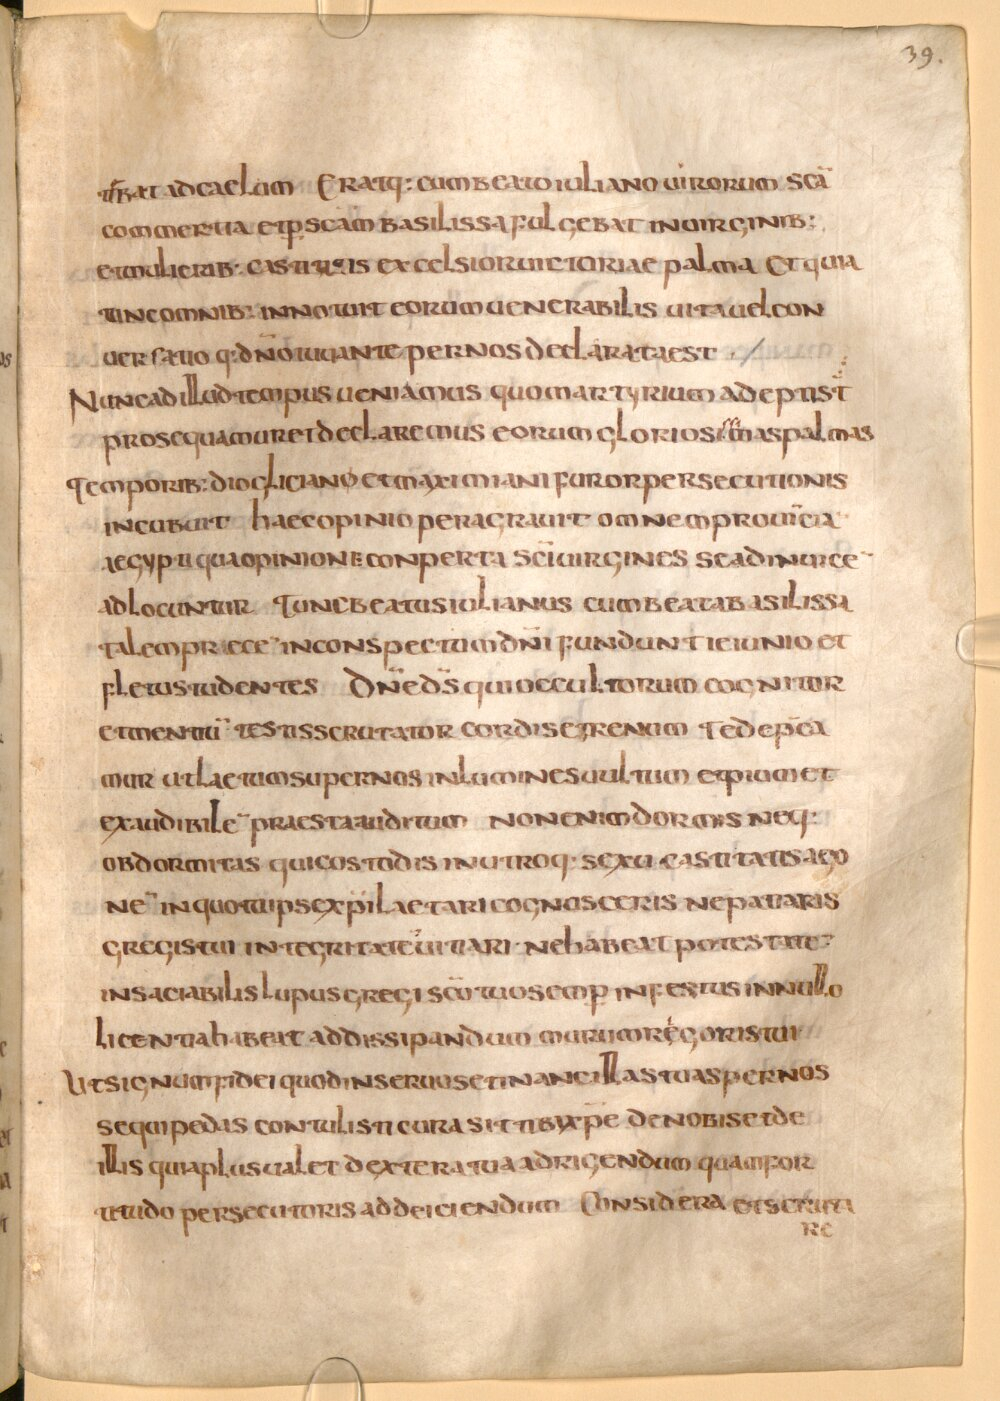 39.
trbat ad caelum Eratq: cum beato iuliano uirorum scā
commertia et per scām basilissa fulgebat in uirginib:
et mulierib: castitatis excelsior uictoriae palma Et quia
tunc omnib: innotuit eorum uenerabilis uita uel con
uersatio q: dn̄o iuuante per nos declarata est
Nunc ad illud tempus ueniamus quo martyrium adepti st̄
prosequamur et declaremus eorum gloriosimas palmas
Temporib: dioclicianO et maximiani furor persecutionis
incubuit haec opinio peragrauit omnem prouīcia
aegypti qua opinione conperta scī uirgines se ad inuice¯
adlocuntur Tunc beatus iulianus cum beata basilissa
talem prece¯ in conspectum dn̄i fundunt ieiunio et
fletu studentes Dn̄e d̄s qui occultorum cognitur
et mentiū testis scrutator cordis et renum Te dep̄ca
mur ut laetum super nos inlumines uultum et pium et
exaudibile¯ praesta auditum non enim dormis neq:
obdormitas qui costodis in utroq: sexu castitatis ago
ne¯ in quo tuip sexp̄i laetari cognosceris ne patiaris
gregis tui integritate uitiari ne habeat potestate¯
insaciabilis lupus gregi scō tuo semp infestus in nullo
licentia habeat ad dissipandum murum regoris tui
Ut signum fidei quod in seruus et in ancillas tuas per nos
sequipedas contulisti cura sit tibi xp̄e de nobis et de
illis quia plus ualet dextera tua adrigendum quam for
titudo persecutoris ad deiciendum Considera et scruta
re